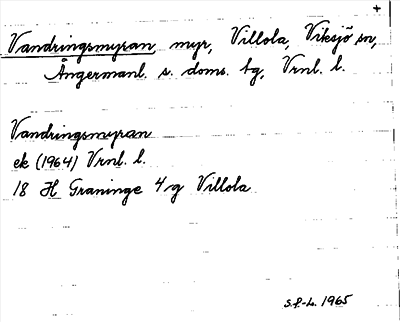 +
Vandringsmyran, myr, Villola, Viksjö sn,
Ångermanl. s. doms. tg, Vrnl. l.
Vandringsmyran
ek (1964) Vrnl. l.
18 H Graninge 4 g Villola
S.F.-L. 1965